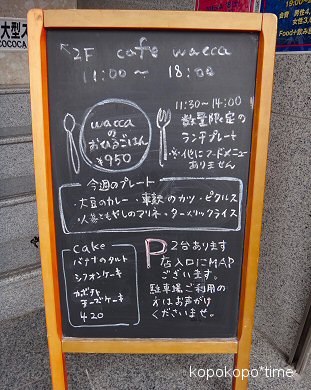 大型ス
COCOCA
19:00～
会費 男性4,
女性3,
Food+飲み
2F cafe wacca
11:00～ 18:00
waccaの
おひるごはん
¥950
11:30～14:00
数量限定の
ランチプレート
※他にフードメニュー
ありません
今週のプレート
・大豆のカレー ・車麩のカツ ・ピクルス
・人参ともやしのマリネ ・ターメリックライス
cake
バナナのタルト
シフォンケーキ
カボチャ
チーズケーキ
420
P 2台あります
店入口にMAP
ございます。
駐車場ご利用の
方はお声がけ
くださいませ。
kopokopo*time